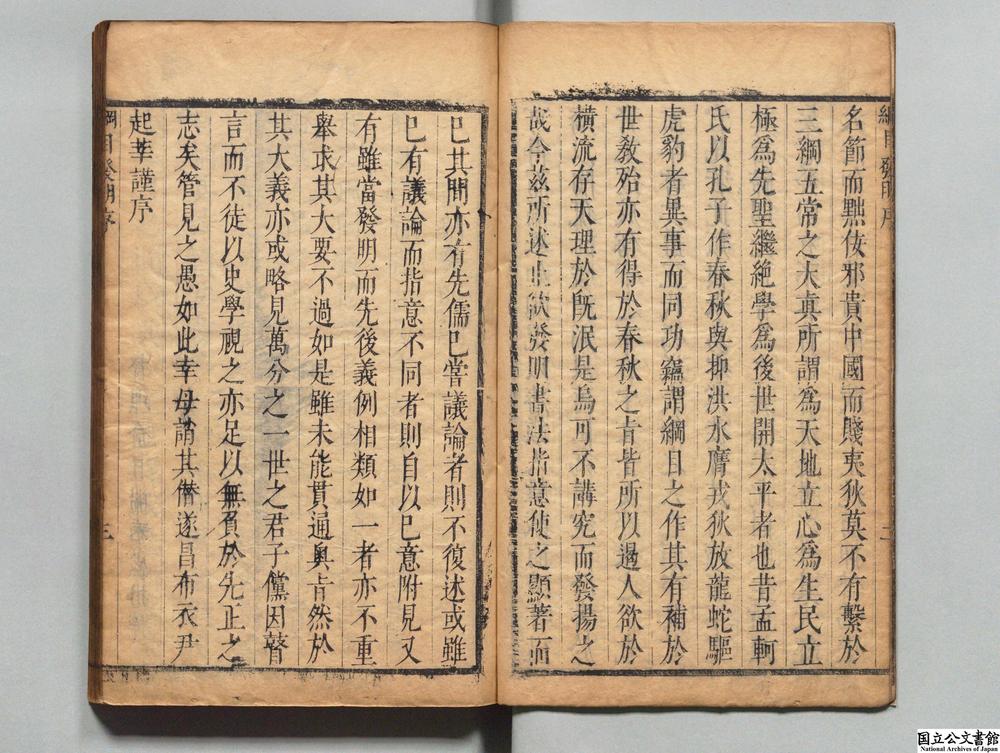 綱目發明序
名節而黜佞邪貴中國而賤夷狄莫不有繫於
三綱五常之大真所謂為天地立心為生民立
極為先聖繼絕學為後世開太平者也昔孟軻
氏以孔子作春秋與抑洪水膺戎狄放龍蛇驅
虎豹者異事而同功竊謂綱目之作其有補於
世敎殆亦有得於春秋之旨皆所以遏人欲於
橫流存天理於旣泯是烏可不講究而發揚之
哉今茲所述止欲發明書法指意使之顯著而
已其間亦有先儒已嘗議論者則不復述或雖
已有議論而指意不同者則自以已意附見又
有雖當發明而先後義例相類如一者亦不重
舉求其大要不過如是雖未能貫通奧旨然於
其大義亦或略見萬分之一世之君子儻因瞽
言而不徒以史學視之亦足以無負於先正之
志矣管見之愚如此幸毋誚其僭遂昌布衣尹
起莘謹序
綱目發明序
三
国立公文書館
National Archives of Japan